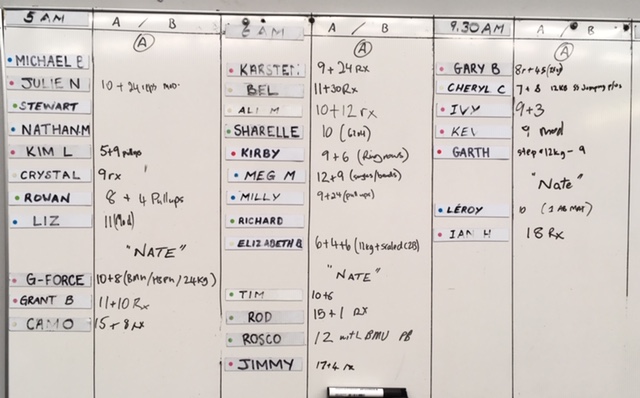 5 AM A / B
(A)
MICHAEL B
JULIE N 10 + 24 reps mod.
STEWART
NATHAN M
KIM L 5+9 pullups
CRYSTAL 9 rx
ROWAN 8 + 4 Pullups
LIZ 11 (Mod)
"NATE"
G-FORCE 10+8 (BMU/HSPU/24kg)
GRANT B 11+10 Rx
CAMO 15+8 rx
6 AM A / B
(A)
KARSTEN 9 + 24 Rx
BEL 11+30 Rx
ALI M 10+12 rx
SHARELLE 10
KIRBY 9+6 (Ringrows)
MEG M 12+9
MILLY 9+24 (pullups)
RICHARD
ELIZABETH B 6+4+6 (12kg + scaled C2B)
"NATE"
TIM 10+6
ROD 15+1 RX
ROSCO 12 with BMU PB
JIMMY 17+4 rx
9.30AM A / B
(A)
GARY B
CHERYL C 7+8 12KB
IVY 9+3
KEV 9 mod
GARTH step + 12kg - 9
"Nate"
LEROY 10 (1 AB MAT)
IAN H 18 Rx